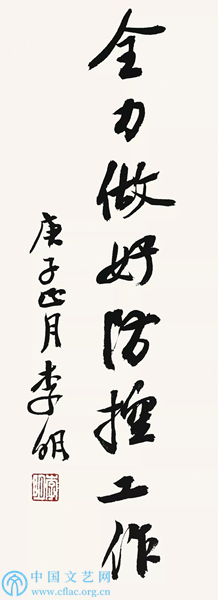 全力做好防控工作
庚子正月李明
中国文艺网
www.cflac.org.cn